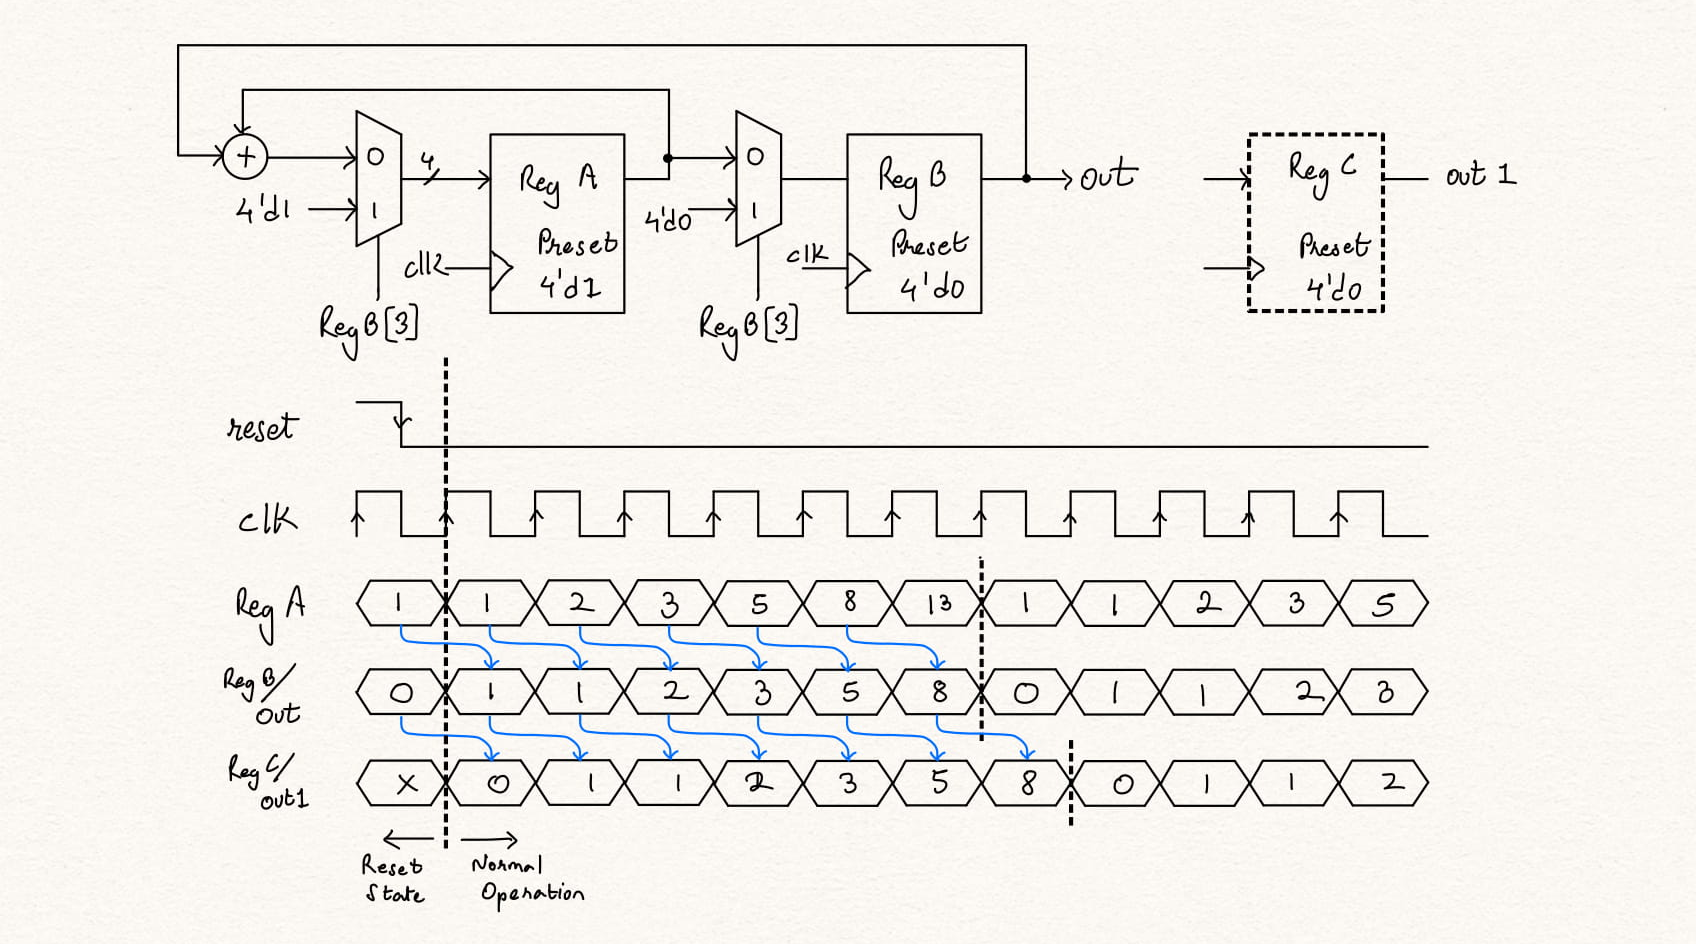 +
0
1
4'd1
4
Reg A
Preset
4'd1
clk
RegB[3]
0
1
4'd0
Reg B
Preset
4'd0
clk
RegB[3]
out
Reg C
Preset
4'd0
out 1
reset
clk
Reg A 1 1 2 3 5 8 13 1 1 2 3 5
Reg B/
out 0 1 1 2 3 5 8 0 1 1 2 3
Reg C/
out1 X 0 1 1 2 3 5 8 0 1 1 2
Reset
State
Normal
Operation